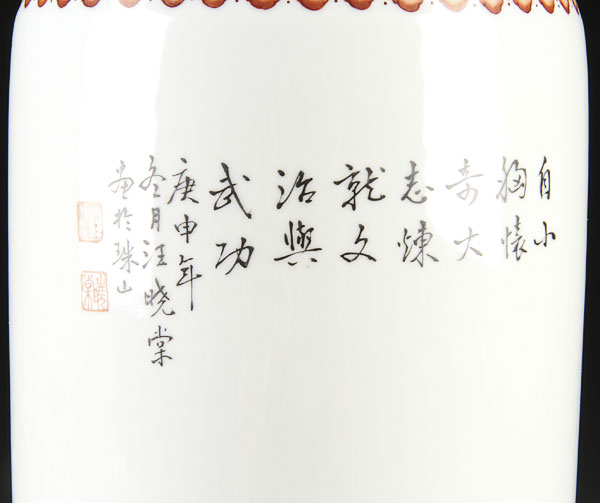 自小
胸懐
奇大
志煉
就文
治與
武功
庚申年
冬月汪曉棠
畫於珠山